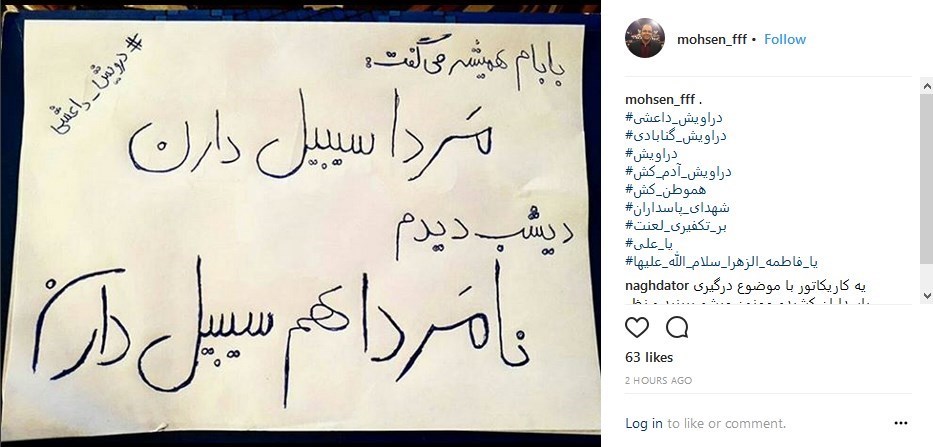 #درویش_داعشی
بابام همیشه می‌گفت:
مَردا سیبیل دارن
دیشب دیدم
نامَردا هم سیبیل دارن
mohsen_fff • Follow
mohsen_fff .
#دراویش_داعشی
#دراویش_گنابادی
#دراویش
#دراویش_آدم_کش
#هموطن_کش
#شهدای_پاسداران
#بر_تکفیری_لعنت
#یا_علی
#یا_فاطمه_الزهرا_سلام_الله_علیها
naghdator یه کاریکاتور با موضوع درگیری
63 likes
2 HOURS AGO
Log in to like or comment.